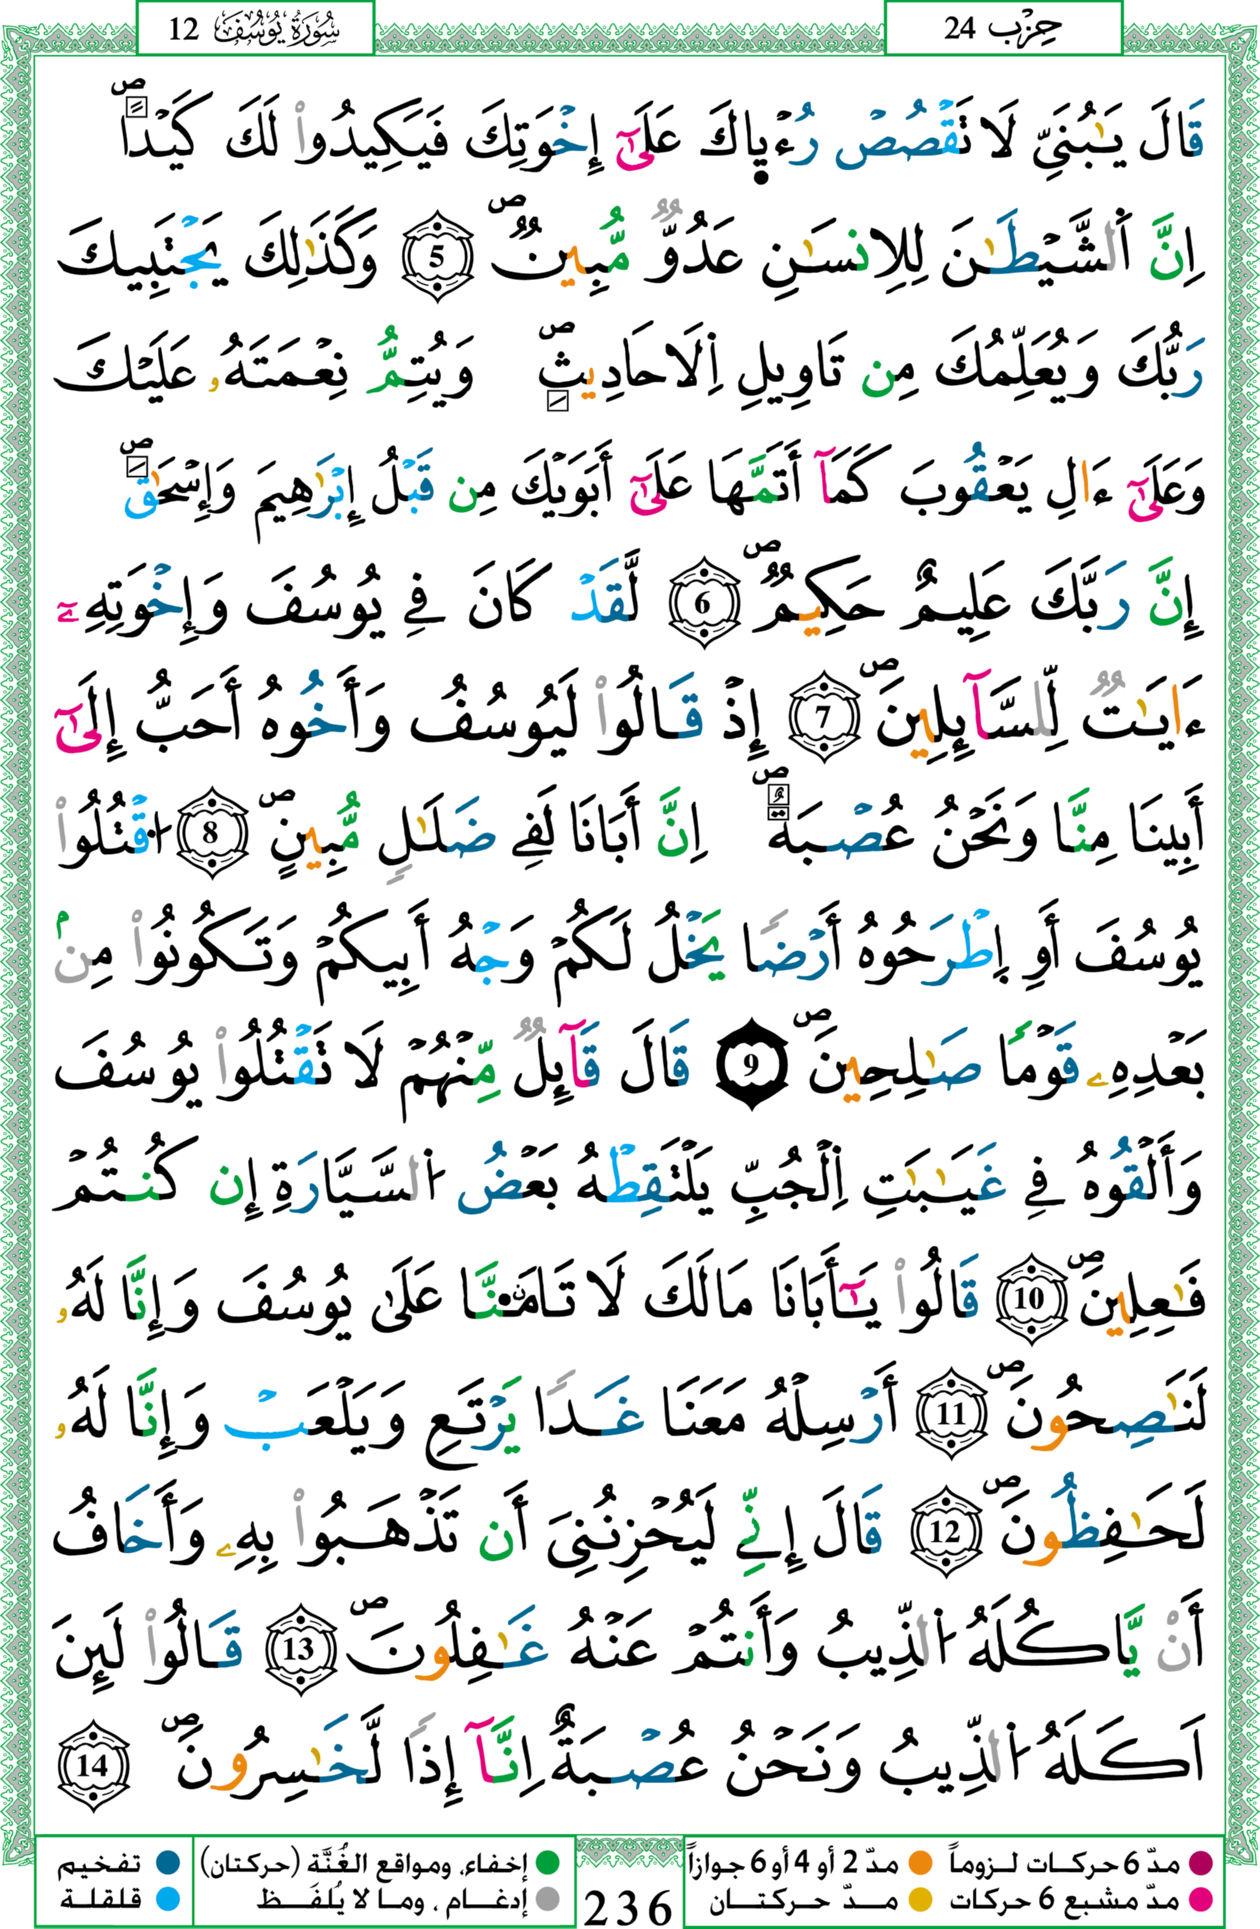 سُورَةُ يُوسُفَ 12
حِزْب 24
قَالَ يَٰبُنَيِّ لَا تَقْصُصْ رُءْيٜاكَ عَلَىٰٓ إِخْوَتِكَ فَيَكِيدُواْ لَكَ كَيْداًۖ
اِنَّ اَ۬لشَّيْطَٰنَ لِلِانسَٰنِ عَدُوّٞ مُّبِينٞۖ 5 وَكَذَٰلِكَ يَجْتَبِيكَ
رَبُّكَ وَيُعَلِّمُكَ مِن تَاوِيلِ اِ۬لَاحَادِيثِۖ وَيُتِمُّ نِعْمَتَهُۥ عَلَيْكَ
وَعَلَىٰٓ ءَالِ يَعْقُوبَ كَمَآ أَتَمَّهَا عَلَىٰٓ أَبَوَيْكَ مِن قَبْلُ إِبْرَٰهِيمَ وَإِسْحَٰقَۖ
إِنَّ رَبَّكَ عَلِيمٌ حَكِيمٞۖ 6 لَّقَدْ كَانَ فِے يُوسُفَ وَإِخْوَتِهِۦٓ
ءَايَٰتٞ لِّلسَّآئِلِينَۖ 7 إِذْ قَالُواْ لَيُوسُفُ وَأَخُوهُ أَحَبُّ إِلَىٰٓ
أَبِينَا مِنَّا وَنَحْنُ عُصْبَةٌۖ اِنَّ أَبَانَا لَفِے ضَلَٰلٖ مُّبِينٍۖ 8 اُ۟قْتُلُواْ
يُوسُفَ أَوِ اِ۪طْرَحُوهُ أَرْضاٗ يَخْلُ لَكُمْ وَجْهُ أَبِيكُمْ وَتَكُونُواْ مِنۢ
بَعْدِهِۦ قَوْماٗ صَٰلِحِينَۖ 9 قَالَ قَآئِلٞ مِّنْهُمْ لَا تَقْتُلُواْ يُوسُفَ
وَأَلْقُوهُ فِے غَيَٰبَٰتِ اِ۬لْجُبِّ يَلْتَقِطْهُ بَعْضُ اُ۬لسَّيَّارَةِ إِن كُنتُمْ
فَٰعِلِينَۖ 10 قَالُواْ يَٰٓأَبَانَا مَالَكَ لَا تَامَ۬نَّا عَلَىٰ يُوسُفَ وَإِنَّا لَهُۥ
لَنَٰصِحُونَۖ 11 أَرْسِلْهُ مَعَنَا غَداٗ يَرْتَعِ وَيَلْعَبْ وَإِنَّا لَهُۥ
لَحَٰفِظُونَۖ 12 قَالَ إِنِّے لَيُحْزِنُنِيَ أَن تَذْهَبُواْ بِهِۦ وَأَخَافُ
أَنْ يَّاكُلَهُ اُ۬لذِّيبُ وَأَنتُمْ عَنْهُ غَٰفِلُونَۖ 13 قَالُواْ لَئِنَ
اَكَلَهُ اُ۬لذِّيبُ وَنَحْنُ عُصْبَةٌ اِنَّآ إِذاٗ لَّخَٰسِرُونَۖ 14
مدّ 6 حركات لـزوماً مدّ 2 أو 4 أو 6 جوازاً إخفاء، ومواقع الغُنَّة (حركتان) تفخيم
مدّ مشبع 6 حركات مـدّ حركتـان إدغـام ، ومـا لا يُلفَـظ قلقلة
236